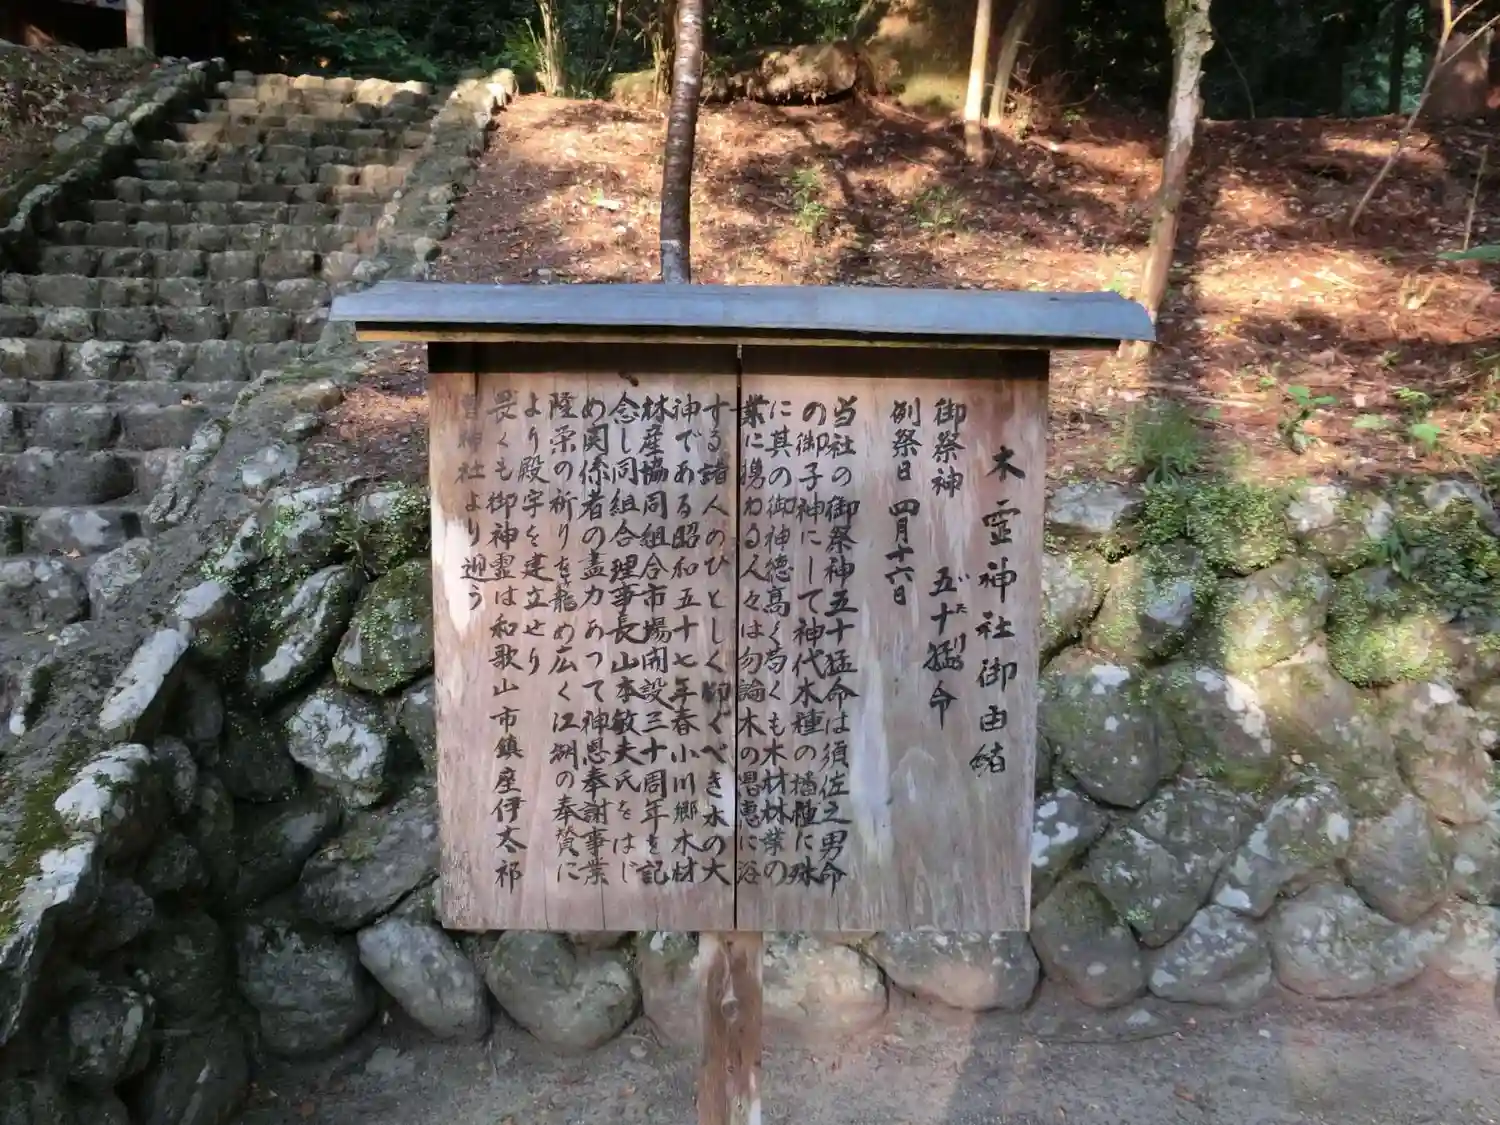 木霊神社御由緒
御祭神 五十猛命
いたける
例祭日 四月十六日
当社の御祭神五十猛命は須佐之男命
の御子神にして神代木種の播種に殊
に其の御神徳高く苟くも木材林業の
業に携わる人々は勿論木の恩恵に浴
する諸人のひとしく仰ぐべき木の大
神である昭和五十七年春小川郷木材
林産協同組合市場開設三十周年を記
念し同組合理事長山本敏夫氏をはじ
め関係者の盡力あつて神恩奉謝事業
隆栄の祈りを籠め広く江湖の奉賛に
より殿宇を建立せり
畏くも御神霊は和歌山市鎮座伊太祁
曽神社より迎う